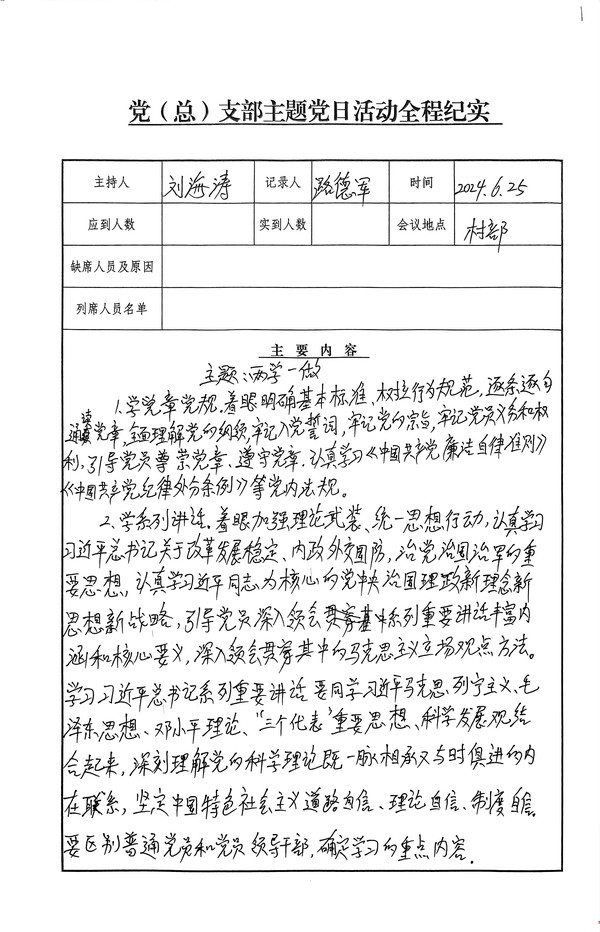 党（总）支部主题党日活动全程纪实
主持人 刘海涛 记录人 路德军 时间 2024.6.25
应到人数 实到人数 会议地点 村部
缺席人员及原因
列席人员名单
主要内容
主题：两学一做
1.学党章党规。着眼明确基本标准、树立行为规范，逐条逐句
通读党章，全面理解党的纲领，牢记入党誓词，牢记党的宗旨，牢记党员义务和权
利，引导党员尊崇党章、遵守党章，认真学习《中国共产党廉洁自律准则》
《中国共产党纪律处分条例》等党内法规。
2.学系列讲话。着眼加强理论武装、统一思想行动，认真学习
习近平总书记关于改革发展稳定、内政外交国防，治党治国治军的重
要思想，认真学习习近平同志为核心的党中央治国理政新理念新
思想新战略，引导党员深入领会贯穿系列重要讲话丰富内
涵和核心要义，深入领会贯穿其中的马克思主义立场观点方法。
学习习近平总书记系列重要讲话要同学习近平马克思、列宁主义、毛
泽东思想、邓小平理论、“三个代表”重要思想、科学发展观结
合起来，深刻理解党的科学理论既一脉相承又与时俱进的内
在联系，坚定中国特色社会主义道路自信、理论自信、制度自信。
要区别普通党员和党员领导干部，确定学习的重点内容．